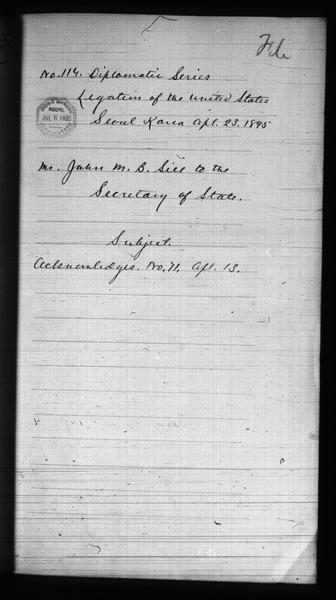 File
No. 114. Diplomatic Series
Legation of the United States
Seoul Korea Apl. 23. 1895
Mr. John M. B. Sill to the
Secretary of State.
Subject.
Acknowledges. No. 71. Apl. 13.